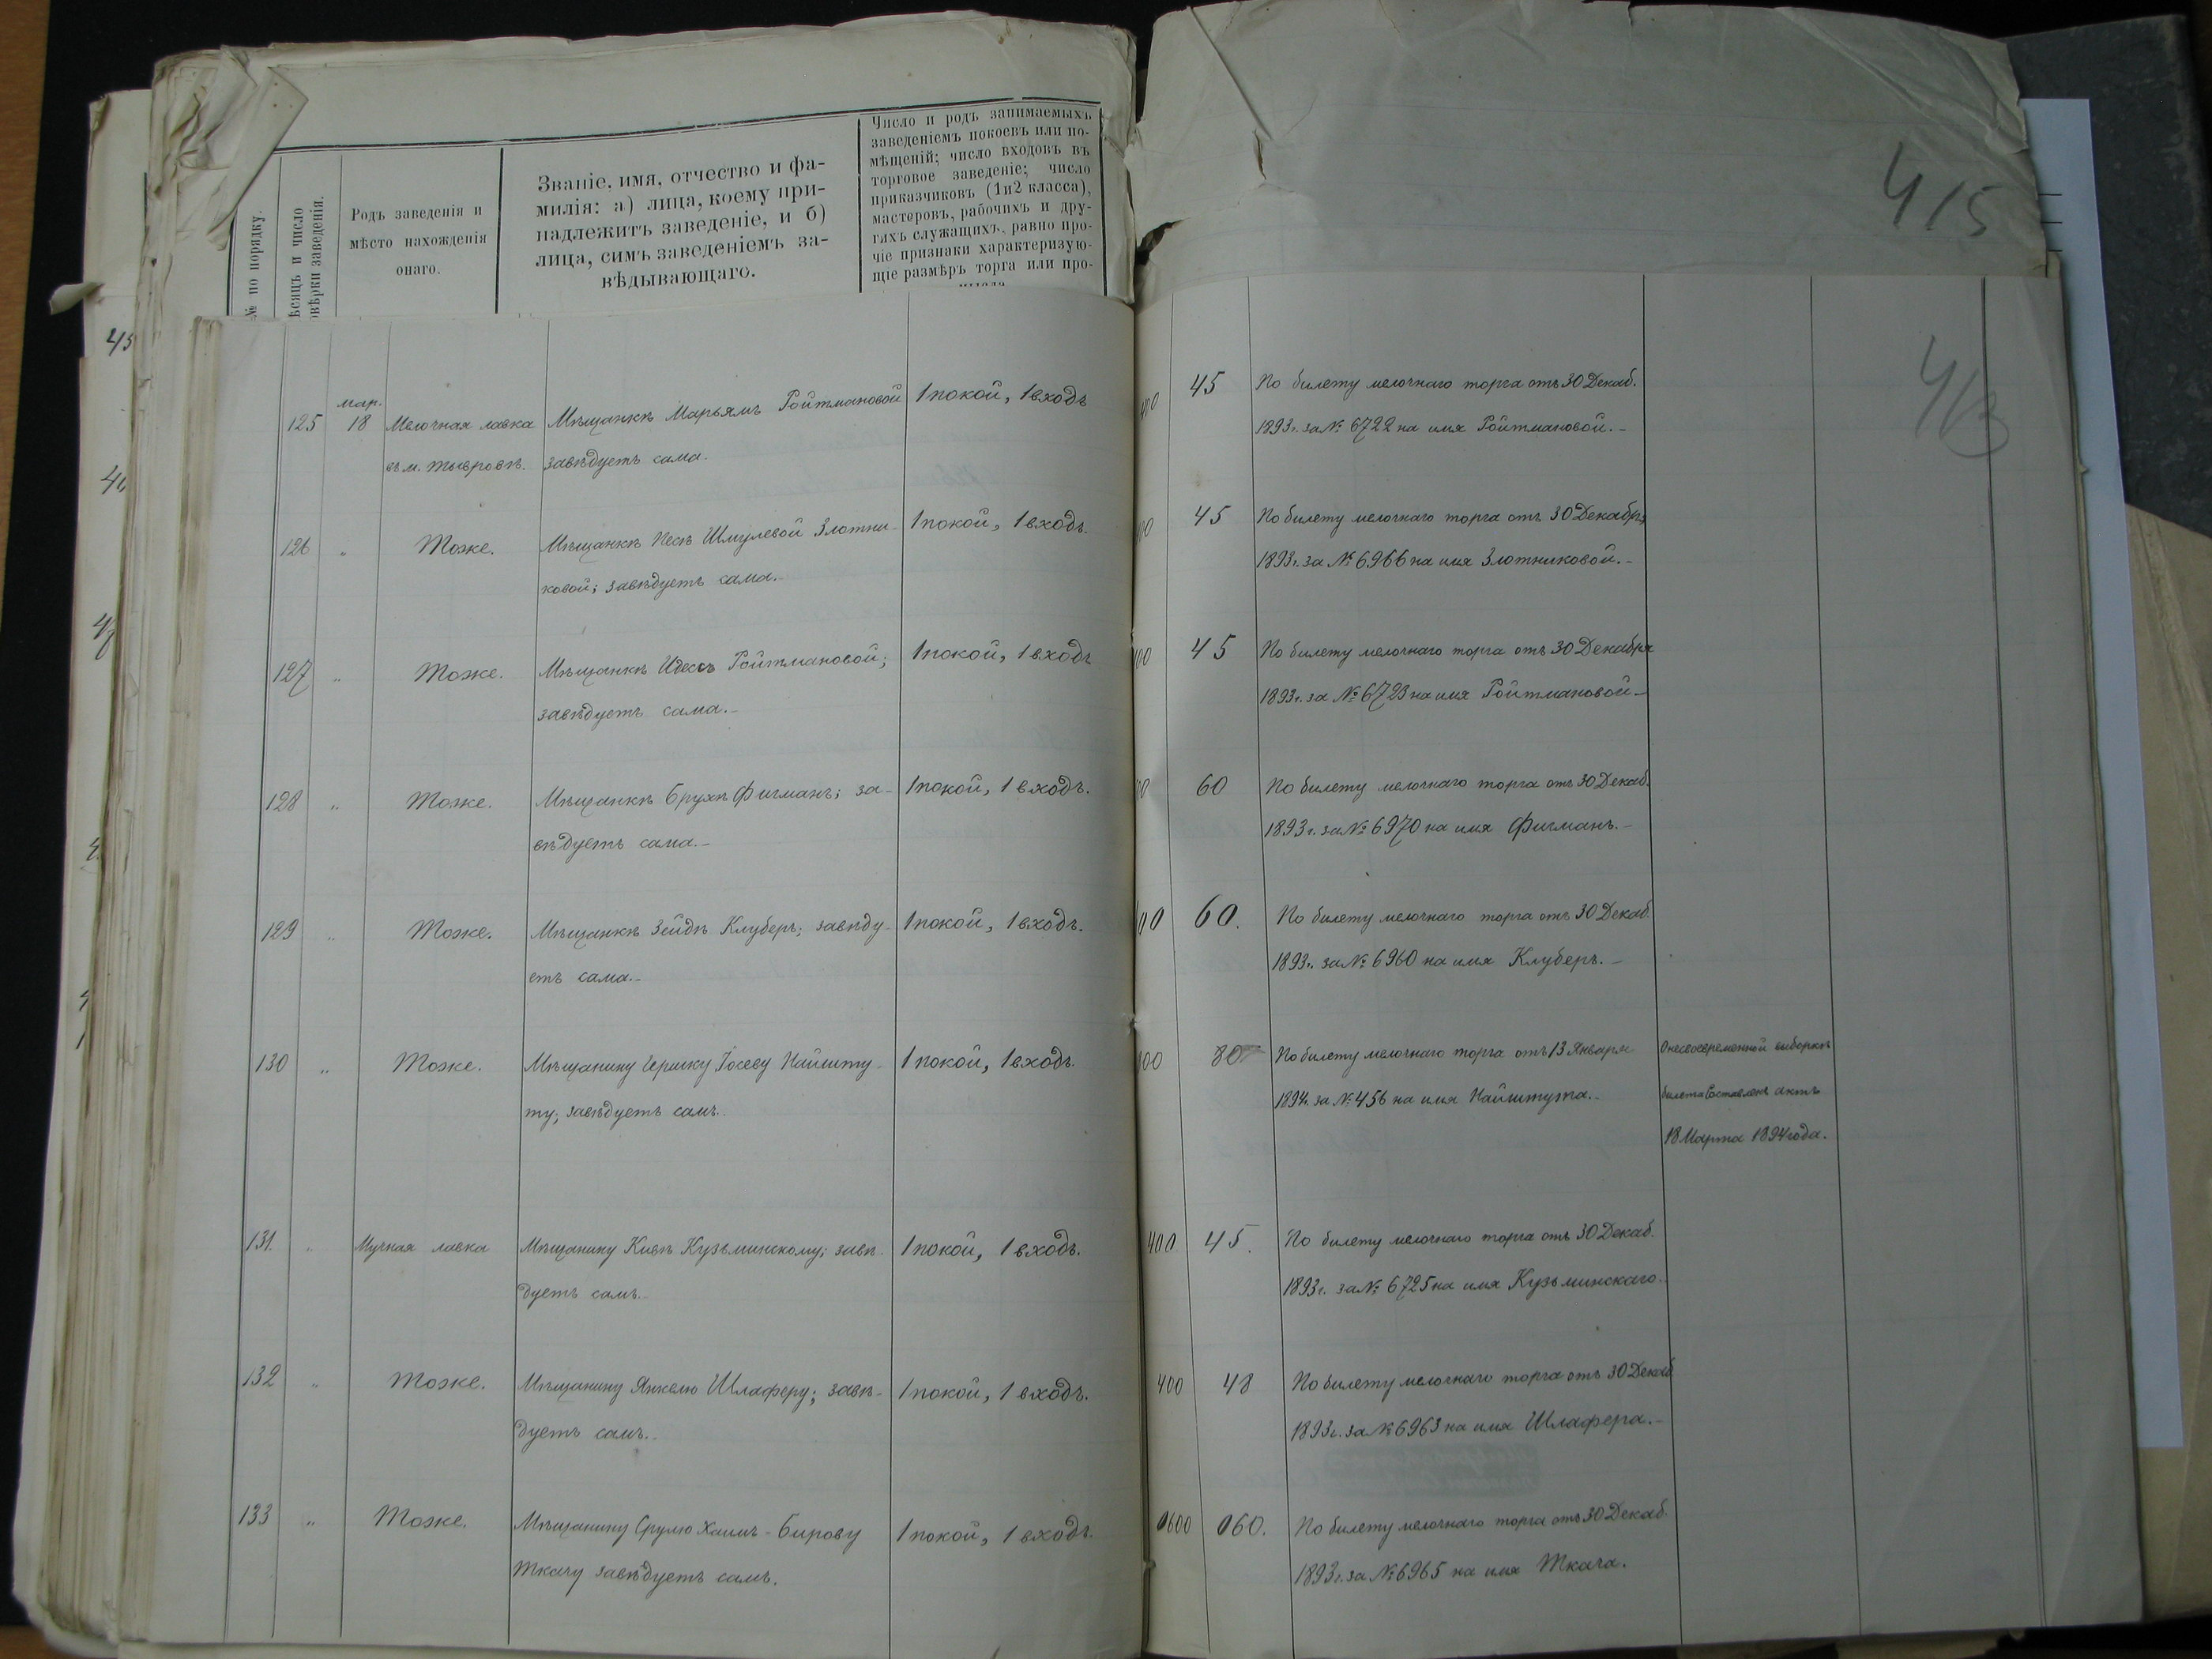 415
№ по порядку.
ѣсяцъ и число
овѣрки заведенія.
Родъ заведенія и
мѣсто нахожденія
онаго.
Званіе, имя, отчество и фа-
милія: а) лица, коему при-
надлежитъ заведеніе, и б)
лица, симъ заведеніемъ за-
вѣдывающаго.
Число и родъ занимаемыхъ
заведеніемъ покоевъ или по-
мѣщеній; число входовъ въ
торговое заведеніе; число
приказчиковъ (1 и 2 класса),
мастеровъ, рабочихъ и дру-
гихъ служащихъ, равно про-
чіе признаки характеризую-
щіе размѣръ торга или про-
413
125 мар. 18 Мелочная лавка Мѣщанкѣ Марьямъ Ройтмановой 1 покой, 1 входъ 400 45 По билету мелочнаго торга отъ 30 Декаб.
въ м. Тывровѣ. завѣдуетъ сама. 1893 г. за № 6722 на имя Ройтмановой.-
126 " Тоже. Мѣщанкѣ Песѣ Шмулевой Злотни- 1 покой, 1 входъ. 00 45 По билету мелочнаго торга отъ 30 Декабря
ковой; завѣдуетъ сама.- 1893 г. за № 6966 на имя Злотниковой.-
127 " Тоже. Мѣщанкѣ Идессъ Ройтмановой; 1 покой, 1 входъ 00 45 По билету мелочнаго торга отъ 30 Декабря
завѣдуетъ сама.- 1893 г. за № 6723 на имя Ройтмановой-
128 " Тоже. Мѣщанкѣ Брухѣ Фигманъ; за- 1 покой, 1 входъ. 00 60 По билету мелочнаго торга отъ 30 Декаб.
вѣдуетъ сама.- 1893 г. за № 6970 на имя Фигманъ.-
129 " Тоже. Мѣщанкѣ Зейдѣ Клуберъ; завѣду- 1 покой, 1 входъ. 00 60. По билету мелочнаго торга отъ 30 Декаб.
етъ сама.- 1893 г. за № 6960 на имя Клуберъ.-
130 " Тоже. Мѣщанину Гершку Іосеву Найшту- 1 покой, 1 входъ. 00 30 По билету мелочнаго торга отъ 13 Января О несвоевременной выборкѣ
ту; завѣдуетъ самъ. 1894 г. за № 456 на имя Найштута.- билета Составленъ актъ
18 Марта 1894 года.
131. " Мучная лавка Мѣщанину Кивѣ Кузьминскому; завѣ- 1 покой, 1 входъ. 400 45. По билету мелочнаго торга отъ 30 Декаб.
дуетъ самъ.- 1893 г. за № 6725 на имя Кузьминскаго.
132 " Тоже. Мѣщанину Янкелю Шлаферу; завѣ- 1 покой, 1 входъ. 400 48 По билету мелочнаго торга отъ 30 Декаб
дуетъ самъ.- 1893 г. за № 6963 на имя Шлафера.-
133 " Тоже. Мѣщанину Срулю Хаимъ-Бирову 1 покой, 1 входъ. 0600 060. По билету мелочнаго торга отъ 30 Декаб.
Ткачу завѣдуетъ самъ. 1893 г. за № 6965 на имя Ткача.